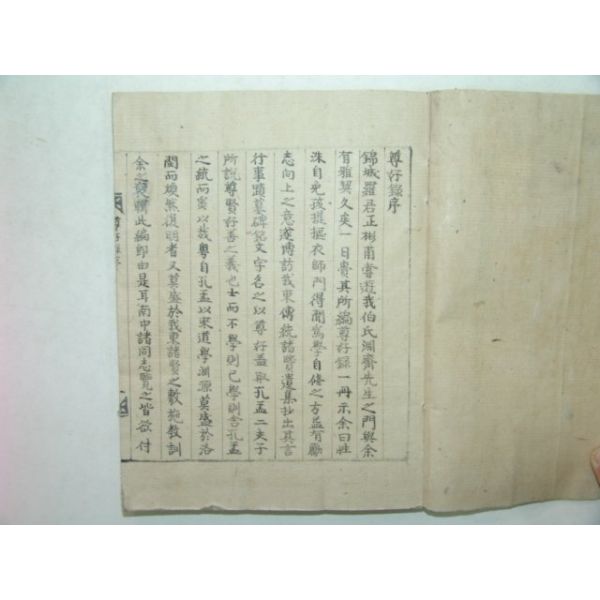 尊好錄序
錦城羅君正彬甫嘗遊我伯氏淵齋先生之門與余
有雅契久矣一日賫其所編尊好錄一冊示余曰姓
洙自免孩提摳衣師門得聞爲學自修之方益有勵
志向上之意遂博訪我東傳統諸賢遺集抄出其言
行事蹟墓碑銘文字名之以尊好盖取孔孟二夫子
所說尊賢好善之義也士而不學則已學則舍孔孟
之統而奚以哉粤自孔孟以來道學淵源莫盛於洛
閩而煥然復明者又莫盛於我東諸賢之敷施敎訓
余之裒輯此編卽由是耳南中諸同志覽之皆欲付
尊好錄序